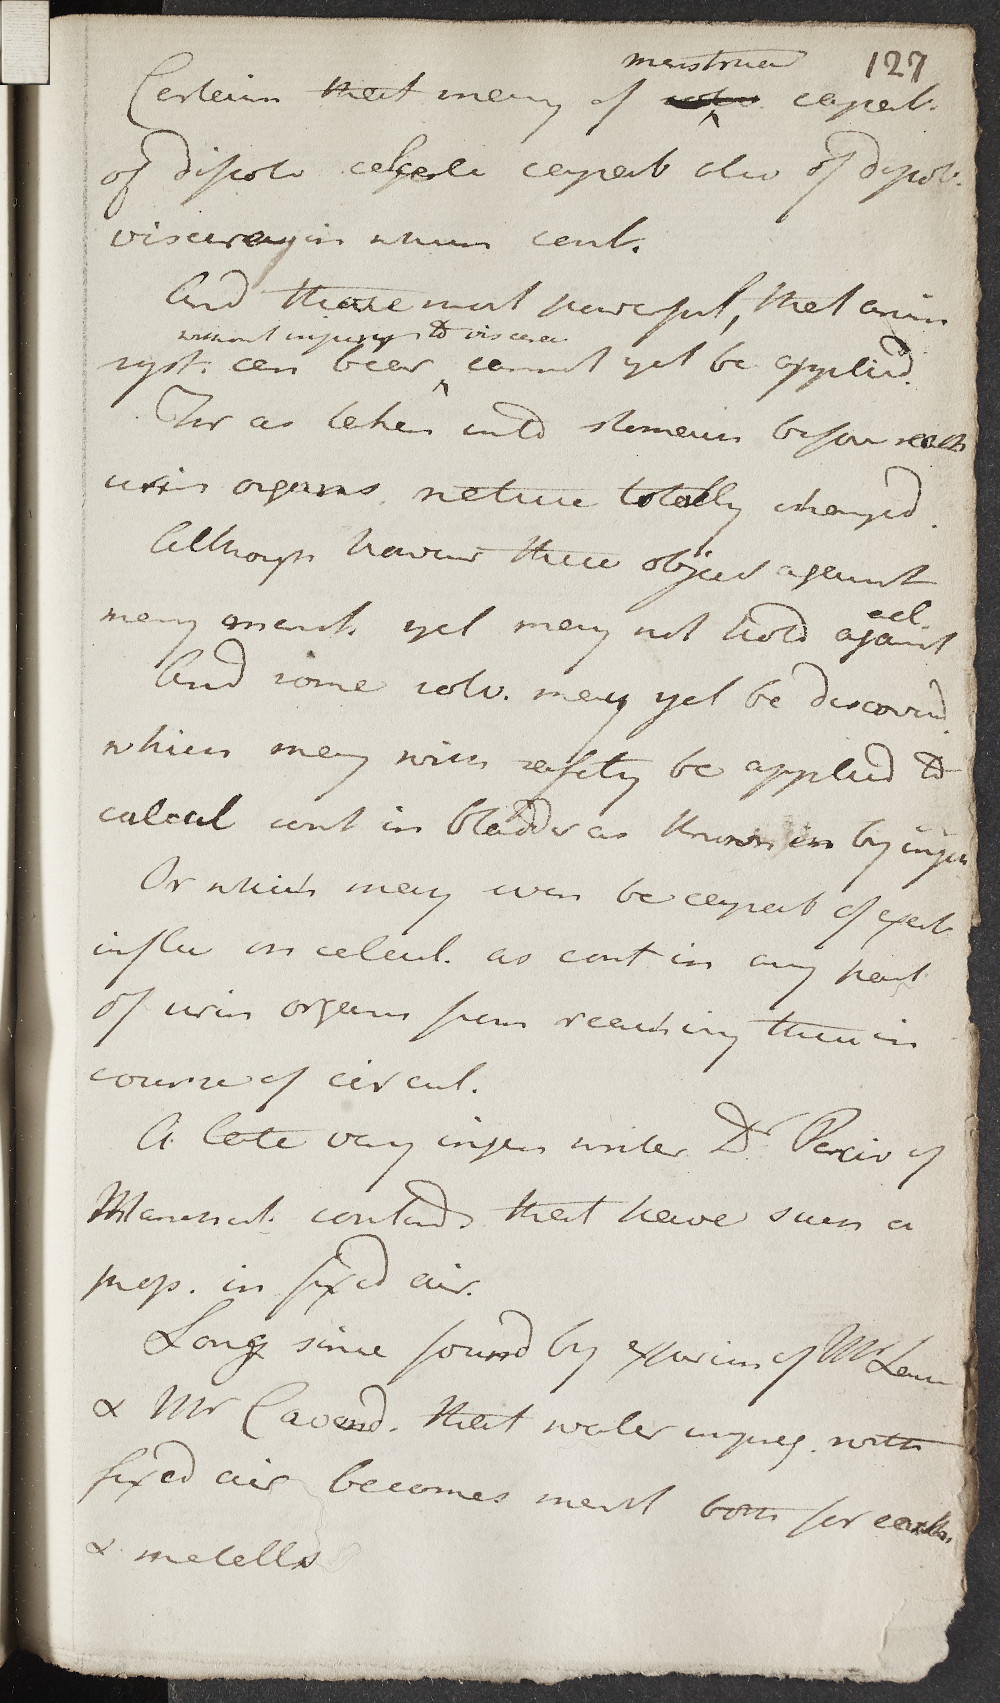 127
menstrua
Certain that many of solv. capab.
of dissolv calculi capab also of dissolv.
viscera in whom cont.
And those most powerful, that anim
without injury to viscera
syst. can bear cannot yet be applied.
For as taken into stomach before reach
urin organs nature totally changed.
Although however these object against
many menst. yet may not hold against
all.
And some solv. may yet be discovered
which may with safety be applied to
calcul cont in bladder as known by injec
Or which may even be capab of exert
influ on calcul. as cont in any part
of urin organs from reaching them in
course of circul.
A late very ingen writer Dr Perciv of
Manchest. contends that have such a
prop. in fixed air.
Long since found by experim of Mr Lane
& Mr Cavend. that water impreg. with
fixed air becomes menst both for earths.
& metalls